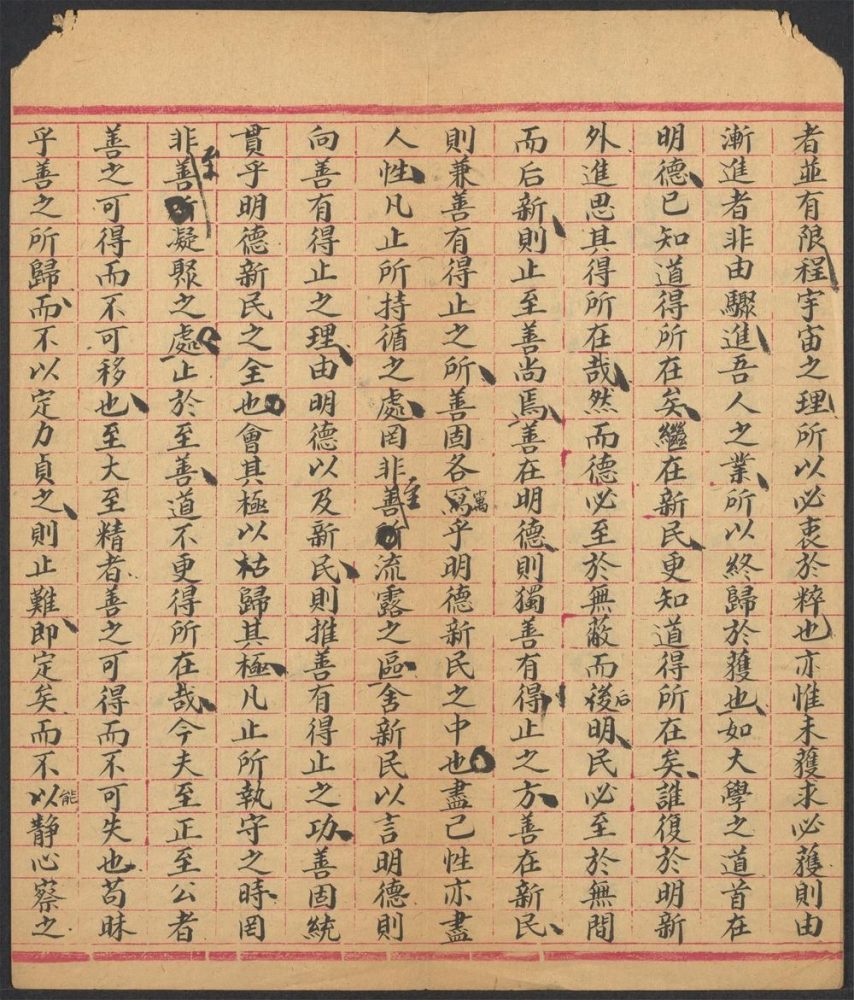 者並有限程宇宙之理所以必衷於粹也亦惟未獲求必獲則由
漸進者非由驟進吾人之業所以終歸於獲也如大學之道首在
明德已知道得所在矣繼在新民更知道得所在矣誰復於明新
外進思其得所在哉然而德必至於無蔽而後后明民必至於無間
而后新則止至善尚焉善在明德則獨善有得止之方善在新民
則兼善有得止之所善固各寫寓乎明德新民之中也盡己性亦盡
人性凡止所持循之處罔非善至所流露之區舍新民以言明德則
向善有得止之理由明德以及新民則推善有得止之功善固統
貫乎明德新民之全也會其極以枯歸其極凡止所執守之時罔
非善至所凝聚之處止於至善道不更得所在哉今夫至正至公者
善之可得而不可移也至大至精者善之可得而不可失也苟昧
乎善之所歸而不以定力貞之則止難即定矣而不以能靜心察之